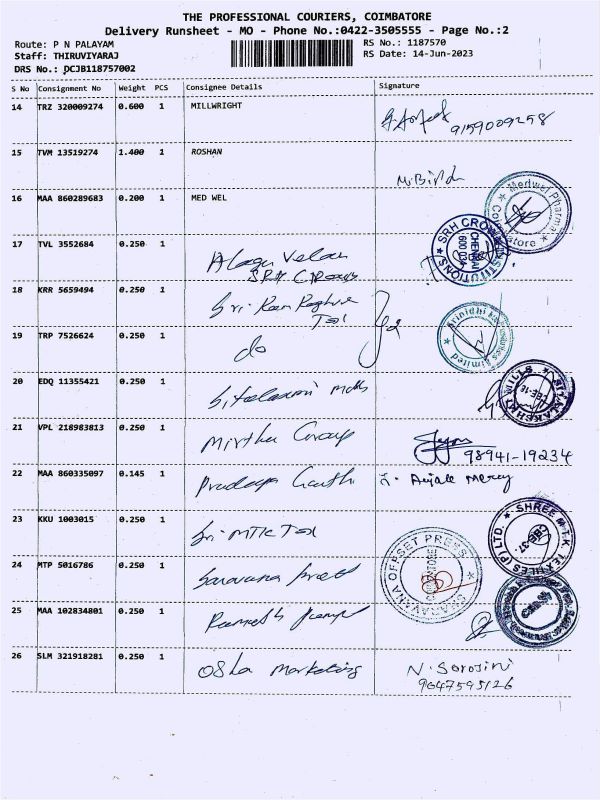 THE PROFESSIONAL COURIERS, COIMBATORE
Delivery Runsheet - MO - Phone No.:0422-3505555 - Page No.:2
Route: P N PALAYAM
RS No.: 1187570
Staff: THIRUVIYARAJ
RS Date: 14-Jun-2023
DRS No.: DCJB118757002
S No Consignment No Weight PCS Consignee Details Signature
14 TRZ 320009274 0.600 1 MILLWRIGHT
9159009258
15 TVM 13519274 1.400 1 ROSHAN
16 MAA 860289683 0.200 1 MED WEL
Medwel Pharma
Coimbatore
17 TVL 3552684 0.250 1 Alagu Velan
SRH Groups
SRH CROWN INSTITUTIONS
CHENNAI
600 034
18 KRR 5659494 0.250 1 Sri Ram Raghve
Tex
19 TRP 7526624 0.250 1 do
Limited
20 EDQ 11355421 0.250 1
MILLS
21 VPL 218983813 0.250 1 Mirthu Group
98941-19234
22 MAA 860335097 0.145 1 Anjale Mercy
23 KKU 1003015 0.250 1 Sri MTK Tex
SHREE M.T.K. TEXTILES (P) LTD.
CBE-37.
24 MTP 5016786 0.250 1 Saravana press
SARAVANA OFFSET PRESS
25 MAA 102834801 0.250 1
26 SLM 321918281 0.250 1 Osha Marketing N. Sarojini
9647595126